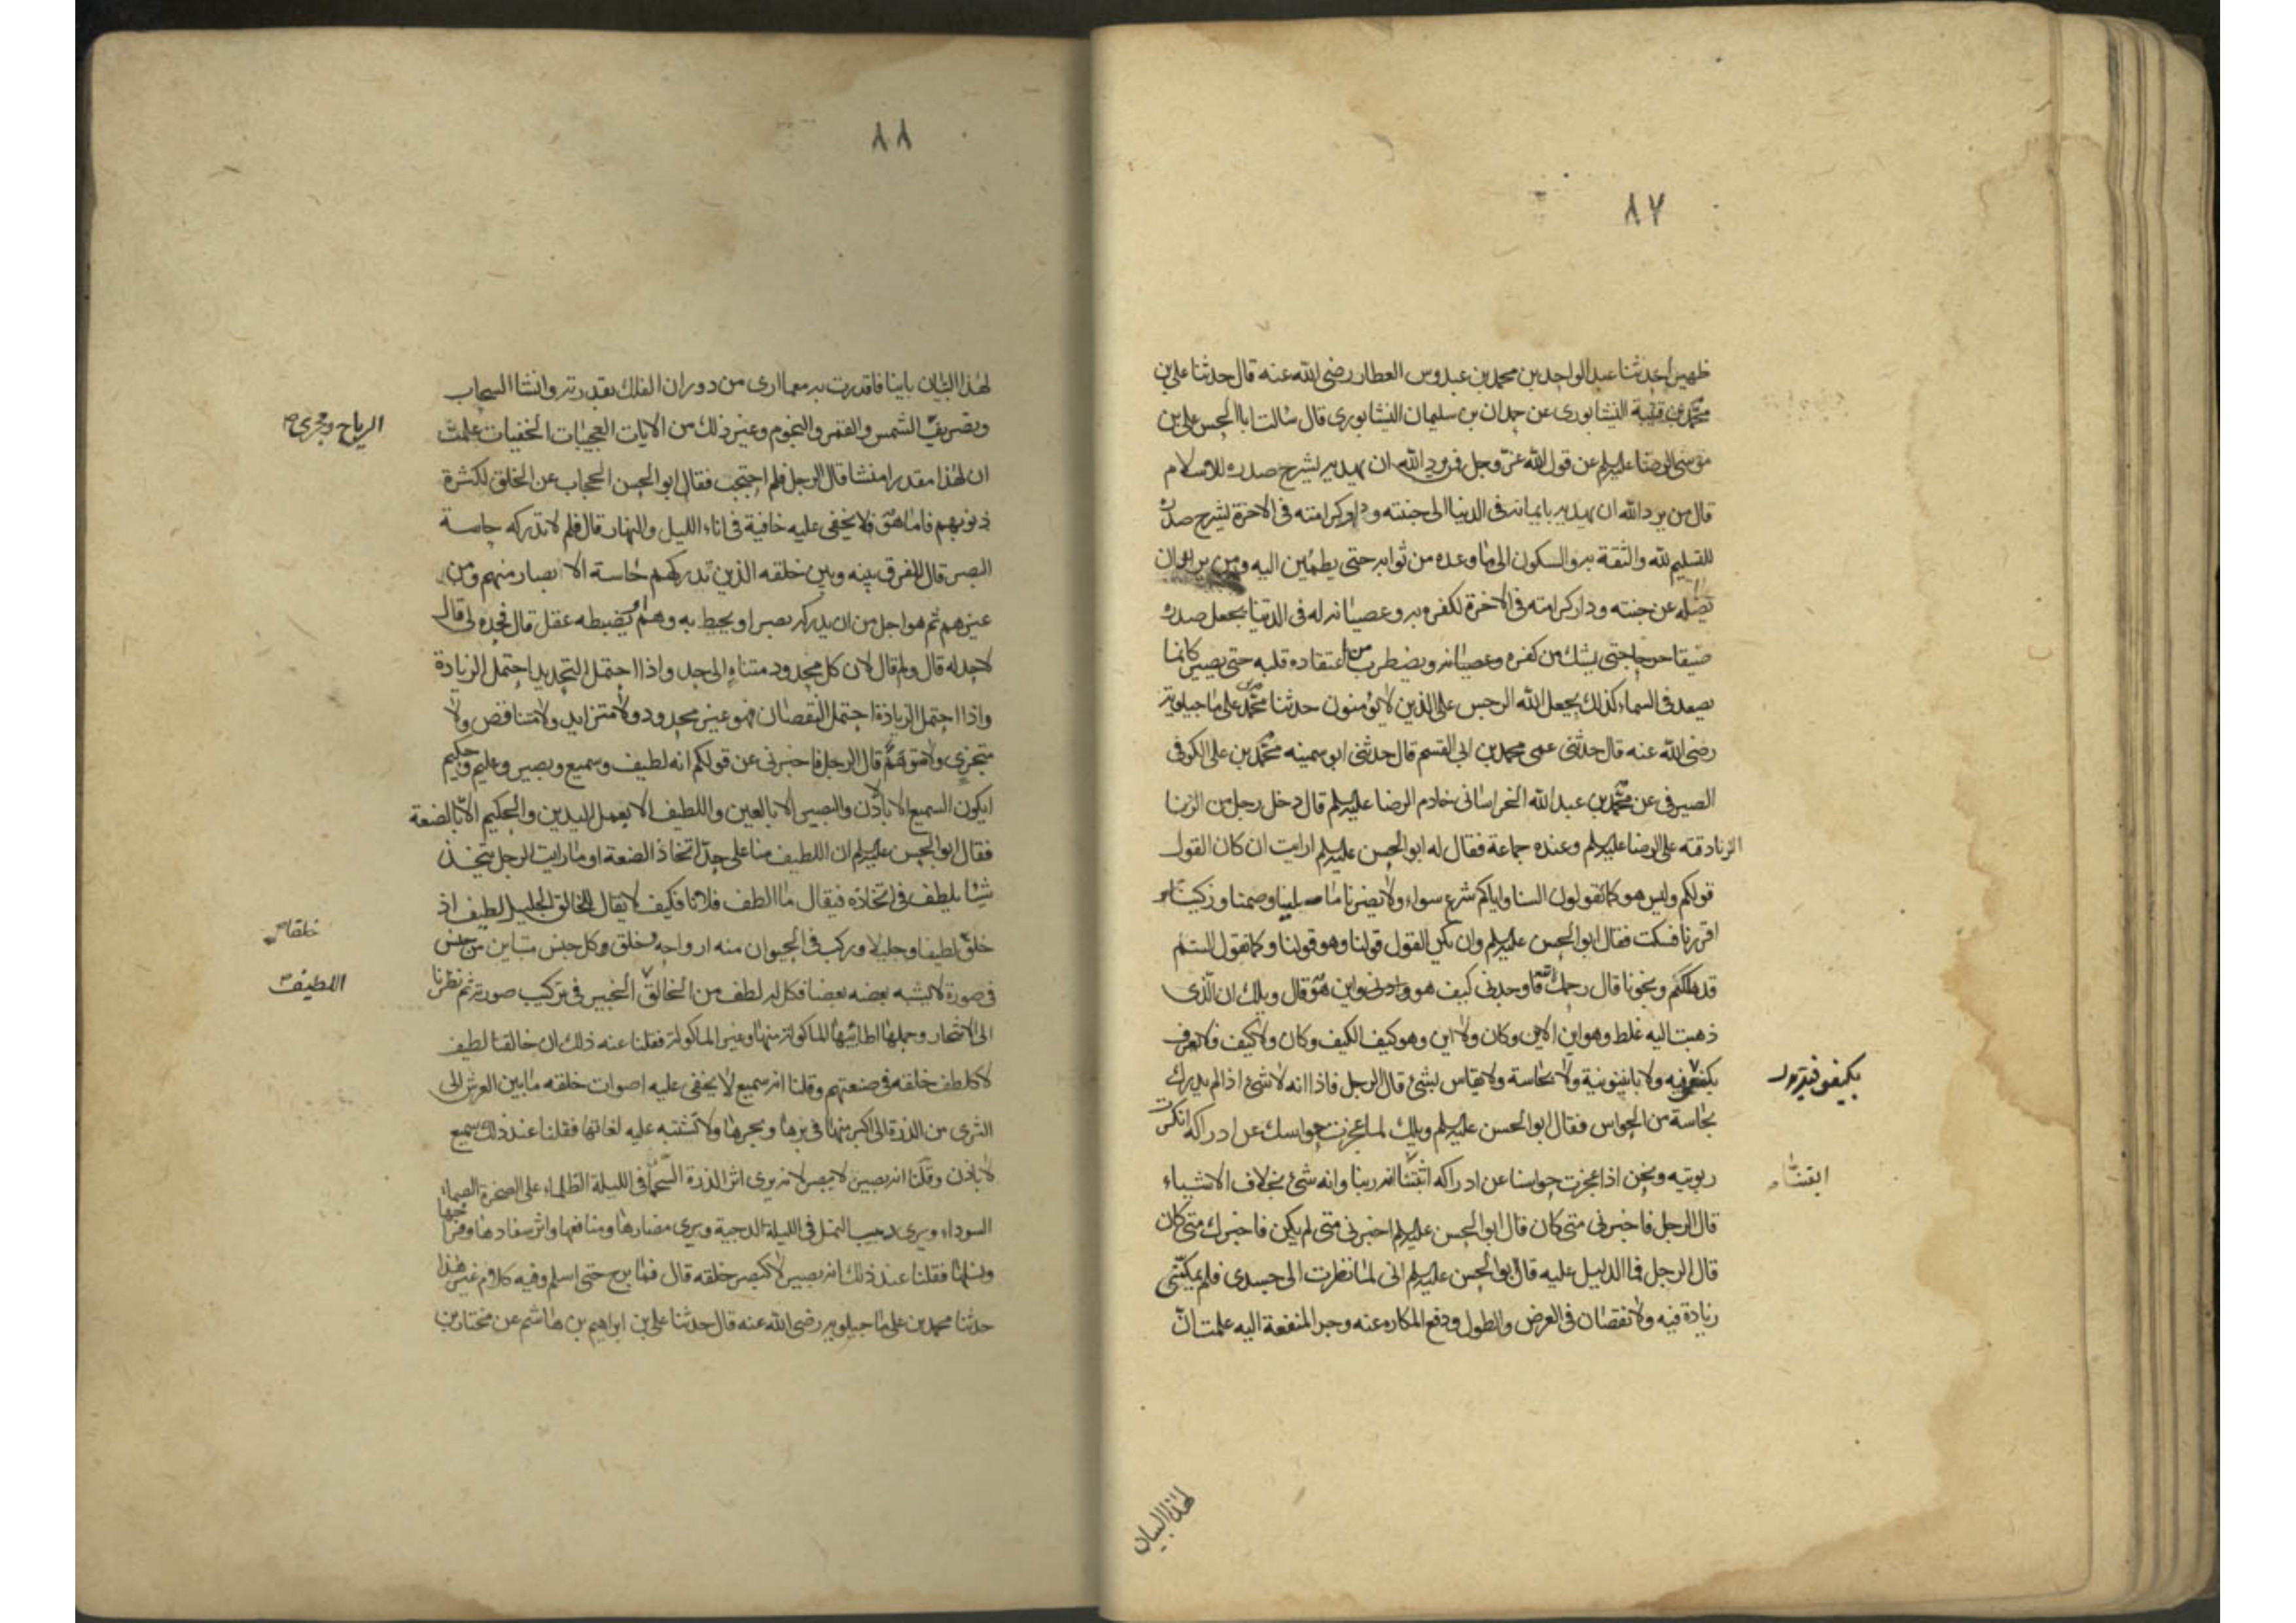 ٨٧
ظهيرا حدثنا عبد الواحد بن محمد بن عبدوس العطار رضى الله عنه قال حدثنا على بن
محمد بن قتيبة النيشابورى عن حمدان بن سليمان النيشابورى قال سالت ابا الحسن على بن
موسى الرضا عليه السلم عن قول الله عز وجل فمن يرد الله ان يهديه يشرح صدره للاسلام
قال من يرد الله ان يهديه بايمانه فى الدنيا الى جنته ودار كرامته فى الاخرة يشرح صدره
للتسليم لله والثقة به والسكون الى ما وعده من ثوابه حتى يطمئن اليه ومن يرد ان
يضله عن جنته ودار كرامته فى الاخرة لكفره به وعصيانه له فى الدنيا يجعل صدره
ضيقا حرجا حتى يشك من كفره وعصيانه ويضطرب من اعتقاده قلبه حتى يصير كانما
يصعد فى السماء كذلك يجعل الله الرجس على الذين لا يؤمنون حدثنا محمد بن على ماجيلويه
رضى الله عنه قال حدثنى عمى محمد بن ابى القسم قال حدثنى ابو سمينه محمد بن على الكوفى
الصيرفى عن محمد بن عبد الله الخراسانى خادم الرضا عليه السلم قال دخل رجل من الزنا
الزنادقة على الرضا عليه السلم وعنده جماعة فقال له ابو الحسن عليه السلم ارايت ان كان القول
قولكم وليس هو كما تقولون السنا واياكم شرع سواء ولا يضرنا ما صلينا وصمنا وزكينا و
اقررنا فسكت فقال ابو الحسن عليه السلم وان يكن القول قولنا وهو قولنا وكما نقول الستم
قد هلكتم ونجونا قال رحمك الله فاوجدنى كيف هو واين هو قال ويلك ان الذى
ذهبت اليه غلط وهو اين الاين وكان ولا اين وهو كيف الكيف وكان ولا كيف فلا يعرف
بكيفوفية ولا باينونية ولا بحاسة ولا يقاس بشئ قال الرجل فاذا انه لا شئ اذا لم يدرك
بحاسة من الحواس فقال ابو الحسن عليه السلم ويلك لما عجزت حواسك عن ادراكه انكرت
ربوبيته ونحن اذا عجزت حواسنا عن ادراكه ايقنا انه ربنا وانه شئ بخلاف الاشياء
ايقنا
قال الرجل فاخبرنى متى كان قال ابو الحسن عليه السلم اخبرنى متى لم يكن فاخبرك متى كان
قال الرجل فما الدليل عليه قال ابو الحسن عليه السلم انى لما نظرت الى جسدى فلم يمكنى
زيادة فيه ولا نقصان فى العرض والطول ودفع المكاره عنه وجر المنفعة اليه علمت ان
لهذا البنيان
٨٨
لهذا البنيان بانيا فاقررت به مع ما ارى من دوران الفلك بقدرته وانشا السحاب
وتصريف الشمس والقمر والنجوم وغير ذلك من الايات العجيبات الخفيات علمت
الرياح ومجرى
ان لهذا مقدرا منشا قال الرجل فلم احتجب فقال ابو الحسن الحجاب عن الخلق لكثرة
ذنوبهم فاما هو فلا يخفى عليه خافية فى اناء الليل والنهار قال فلم لا تدركه حاسة
البصر قال للفرق بينه وبين خلقه الذين تدركهم حاسة الابصار منهم ومن
غيرهم ثم هو اجل من ان يدركه بصر او يحيط به وهم او يضبطه عقل قال فحده لى قال
لا حد له قال ولم قال لان كل محدود متناه الى حد واذا احتمل التحديد احتمل الزيادة
واذا احتمل الزيادة احتمل النقصان فهو غير محدود ولا متزايد ولا متناقص ولا
متجزى ولا متوهم قال الرجل فاخبرنى عن قولكم انه لطيف وسميع وبصير وعليم وحكيم
ايكون السميع الا بالاذن والبصير الا بالعين واللطيف الا بعمل اليدين والحكيم الا بالصنعة
فقال ابو الحسن عليه السلم ان اللطيف منا على حد اتخاذ الصنعة او ما رايت الرجل يتخذ
شيئا يلطف فى اتخاذه فيقال ما الطف فلانا فكيف لا يقال للخالق الجليل لطيف اذ
خلق لطيفا وجليلا وركب فى الحيوان منه ارواحه وخلق وكل جنس متباين من جنس
خلقا
فى صورة لا يشبه بعضه بعضا فكل له لطف من الخالق الخبير فى تركيب صورته ثم نظرنا
اللطيف
الى الاشجار وحملها اطائبها الماكولة منها وغير الماكولة فقلنا عند ذلك ان خالقنا لطيف
لا كلطف خلقه فى صنعتهم وقلنا انه سميع لا يخفى عليه اصوات خلقه ما بين العرش الى
الثرى من الذرة الى اكبر منها فى برها وبحرها ولا تشتبه عليه لغاتها فقلنا عند ذلك سميع
لا باذن وقلنا انه بصير لا ببصر لانه يرى اثر الذرة السحماء فى الليلة الظلماء على الصخرة الصماء
السوداء ويرى دبيب النمل فى الليلة الدجية ويرى مضارها ومنافعها واثر سفادها وفراخها
ونسلها فقلنا عند ذلك انه بصير لا كبصر خلقه قال فما برح حتى اسلم وفيه كلام غير هذا
حدثنا محمد بن على ماجيلويه رضى الله عنه قال حدثنا على بن ابراهيم بن هاشم عن مختار بن